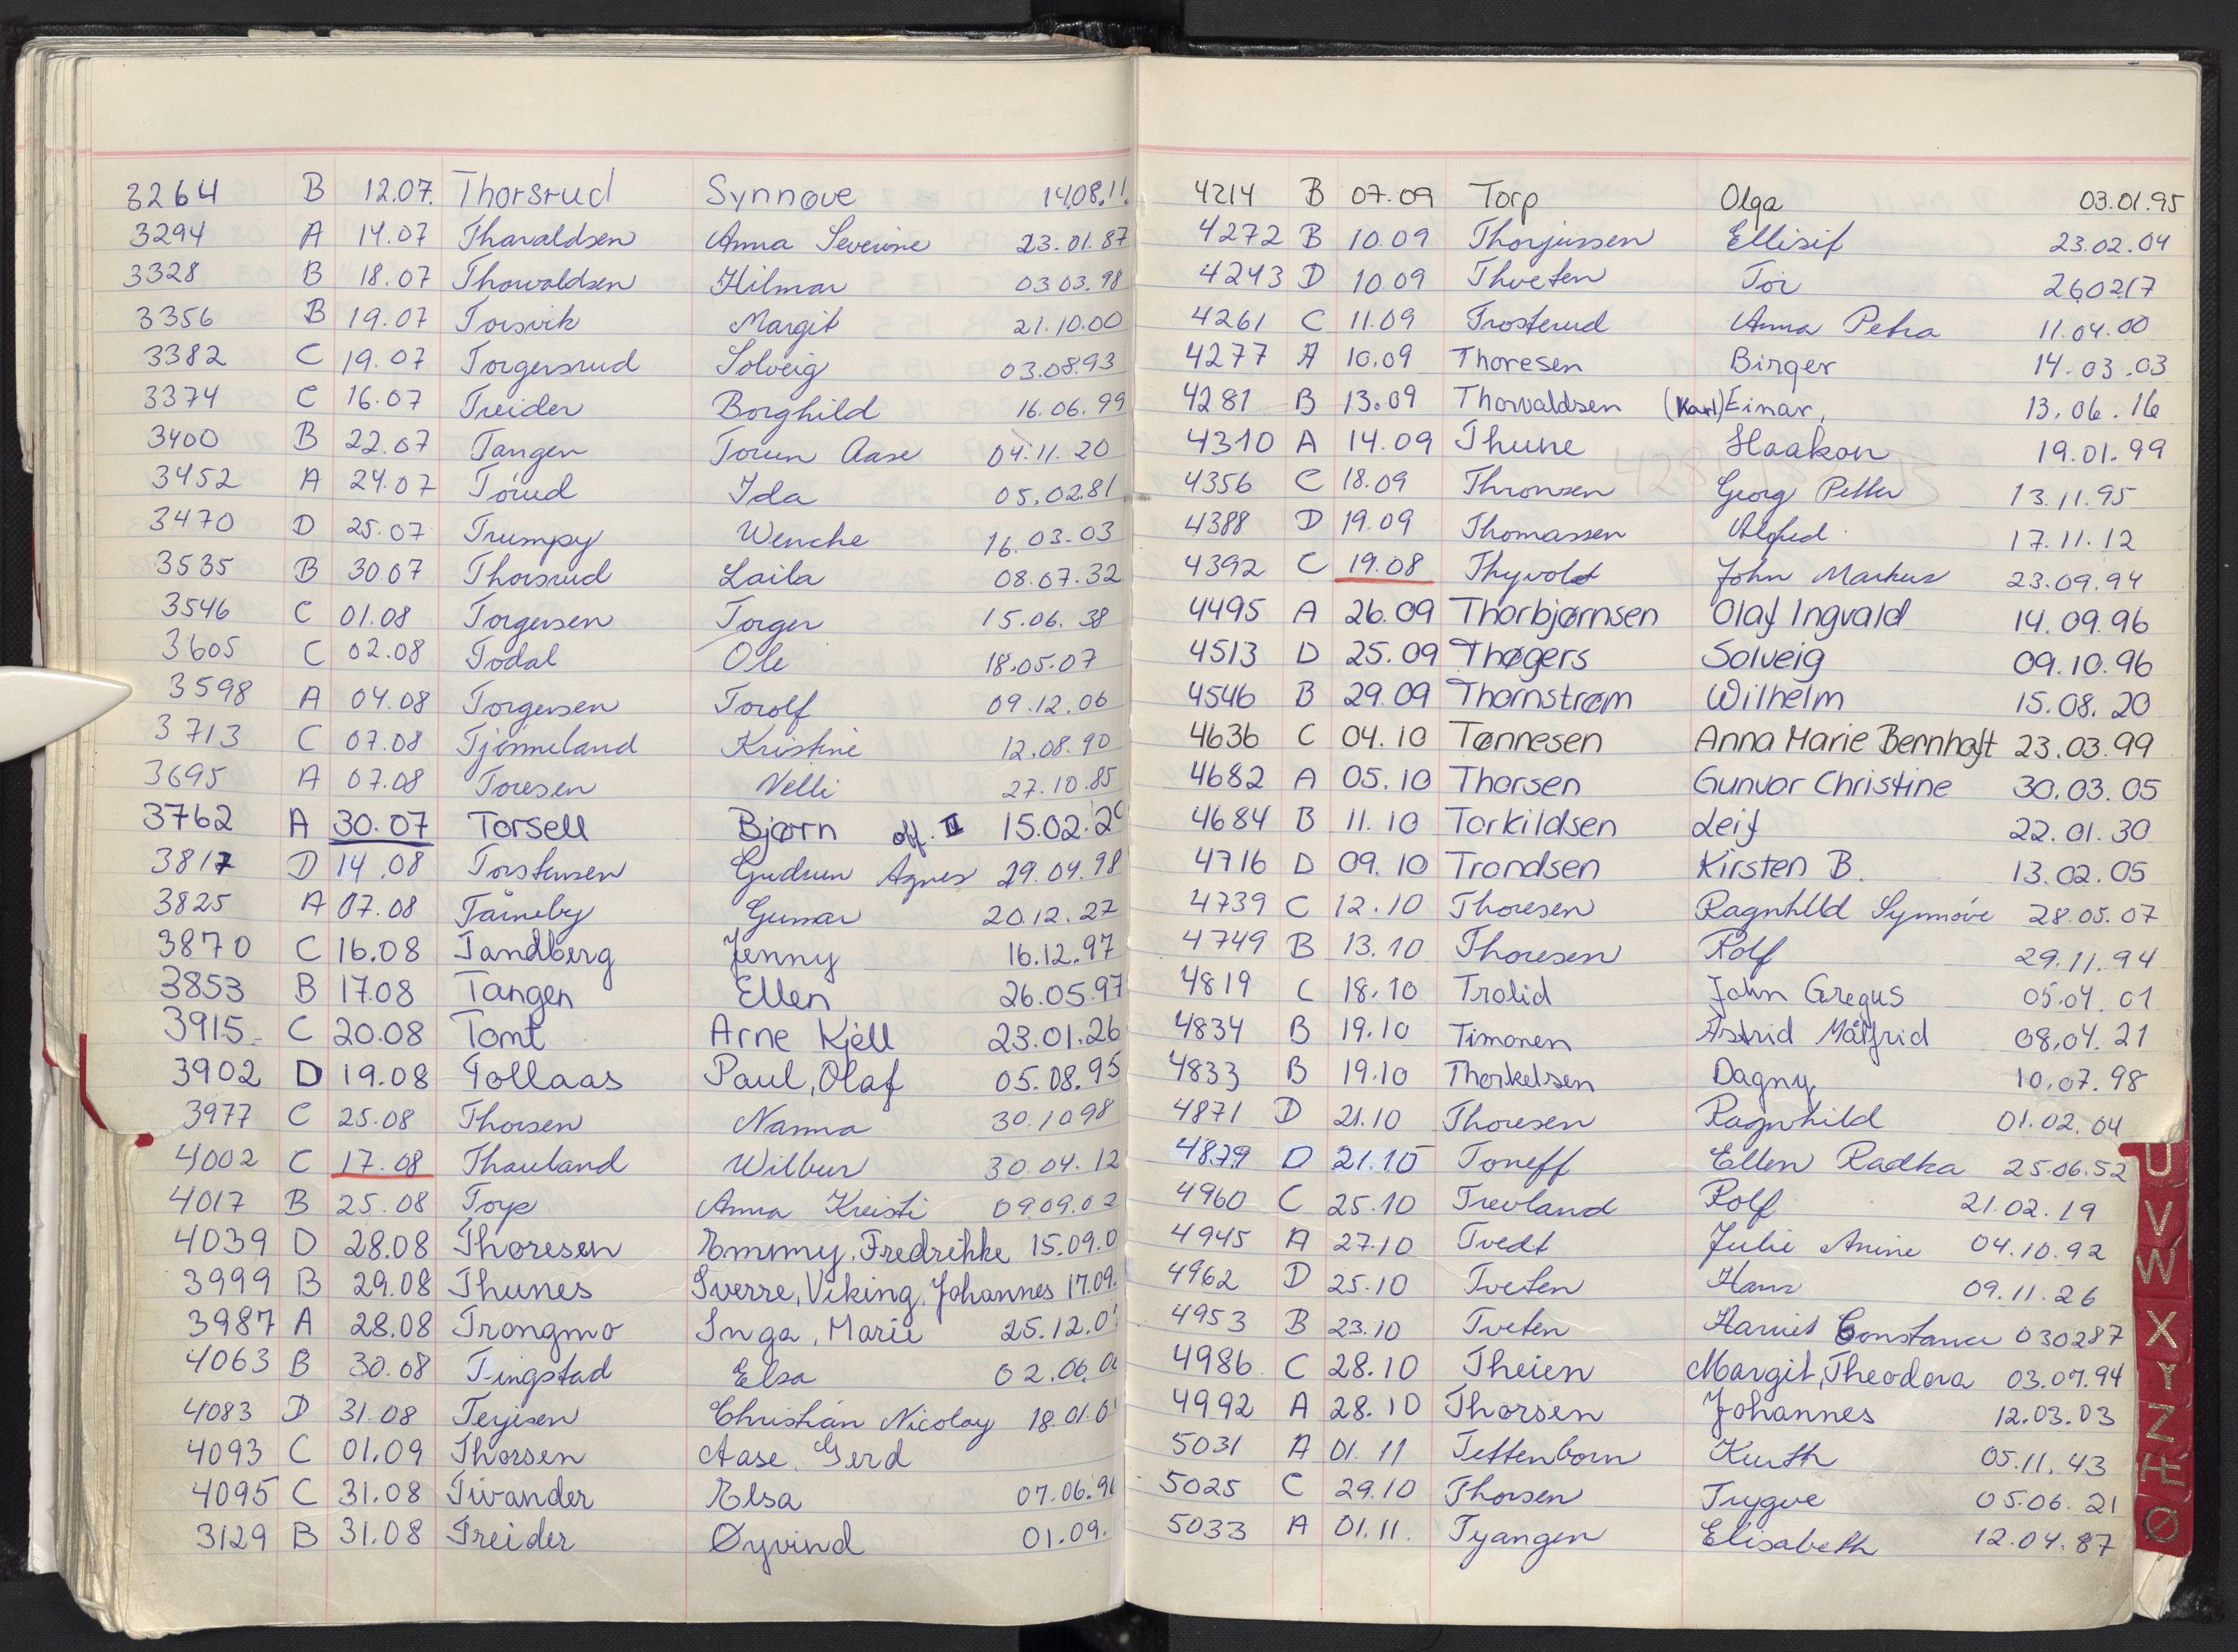 3264 B 12.07. Thorsrud Synnøve 14.08.11.
3294 A 14.07 Tharaldsen Anna Severine 23.01.87
3328 B 18.07 Thorvaldsen Hilmar 03.03.98
3356 B 19.07 Torsvik Margit 21.10.00
3382 C 19.07 Torgersrud Solveig 03.08.93
3374 C 16.07 Treider Borghild 16.06.99
3400 B 22.07 Tangen Torun Aase 04.11.20
3452 A 24.07 Tørud Ida 05.02.81
3470 D 25.07 Trumpy Wenche 16.03.03
3535 B 30.07 Thorsrud Laila 08.07.32
3546 C 01.08 Torgersen Torger 15.06.38
3605 C 02.08 Todal Ole 18.05.07
3598 A 04.08 Torgersen Torolf 09.12.06
3713 C 07.08 Tjømmeland Kristine 12.08.90
3695 A 07.08 Toresen Nelli 27.10.85
3762 A 30.07 Torsell Bjørn off. II 15.02.2
3817 D 14.08 Torstensen Gudrun Agnes 29.04.98
3825 A 07.08 Tårneby Gunnar 20.12.27
3870 C 16.08 Tandberg Jenny 16.12.97
3853 B 17.08 Tangen Ellen 26.05.97
3915 C 20.08 Tomt Arne Kjell 23.01.26
3902 D 19.08 Tollaas Paul, Olaf 05.08.95
3977 C 25.08 Thorsen Nanna 30.1098
4002 C 17.08 Thauland Wilbur 30.04.12
4017 B 25.08 Torp Anna Kristi 09.09.02
4039 D 28.08 Thoresen Emmy, Fredrikke 15.09.0
3999 B 29.08 Thunes Sverre, Viking, Johannes 17.09.
3987 A 28.08 Trongmo Inga, Marie 25.12.0
4063 B 30.08 Tingstad Elsa 02.06.0
4083 D 31.08 Terjesen Christian Nicolay 18.01.0
4093 C 01.09 Thorsen Aase, Gerd
4095 C 31.08 Tivander Elsa 07.06.9
3129 B 31.08 Treider Øyvind 01.09.
4214 B 07.09 Torp Olga 03.01.95
4272 B 10.09 Thorjussen Ellisif 23.02.04
4243 D 10.09 Thveten Tor 260217
4261 C 11.09 Trosterud Anna Petra 11.04.00
4277 A 10.09 Thoresen Birger 14.03.03
4281 B 13.09 Thorvaldsen (Karl) Einar, 13.06.16
4310 A 14.09 Thune Haakon 19.01.99
4356 C 18.09 Thronsen Georg Petter 13.11.95
4388 D 19.09 Thomassen Alfred 17.11.12
4392 C 19.08 Thyvold John Markus 23.09.94
4495 A 26.09 Thorbjørnsen Olaf Ingvald 14.09.96
4513 D 25.09 Thøgers Solveig 09.10.96
4546 B 29.09 Thornstrøm Wilhelm 15.08.20
4636 C 04.10 Tønnesen Anna Marie Bernhoft 23.03.99
4682 A 05.10 Thorsen Gunvor Christine 30.03.05
4684 B 11.10 Torkildsen Leif 22.01.30
4716 D 09.10 Trondsen Kirsten B. 13.02.05
4739 C 12.10 Thoresen Ragnhild Synnøve 28.05.07
4749 B 13.10 Thoresen Rolf 29.11.94
4819 C 18.10 Trolid John Gregus 05.04.01
4834 B 19.10 Timonen Astrid Målfrid 08.04.21
4833 B 19.10 Thorkelsen Dagny 10.07.98
4871 D 21.10 Thoresen Ragnhild 01.02.04
4879 D 21.10 Toneff Ellen Radka 25.06.52
4960 C 25.10 Trevland Rolf 21.02.19
4945 A 27.10 Tvedt Julie Anine 04.10.92
4962 D 25.10 Tveten Hans 09.11.26
4953 B 23.10 Tveten Harriet Constance 030287
4986 C 28.10 Theien Margit, Theodora 03.07.94
4992 A 28.10 Thorsen Johannes 12.03.03
5031 A 01.11 Tettenborn Kurth 05.11.43
5025 C 29.10 Thorsen Trygve 05.06.21
5033 A 01.11. Tyangen Elisabeth 12.04.87
U
V
W
X
Y
Z
Æ
Ø